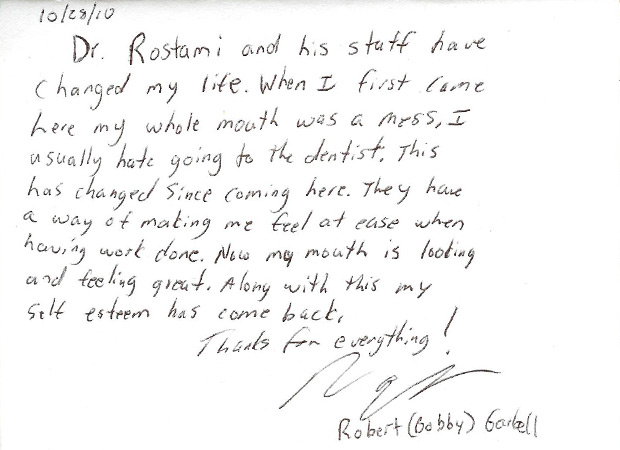 10/28/10
Dr. Rostami and his staff have
changed my life. When I first came
here my whole mouth was a mess, I
usually hate going to the dentist. This
has changed since coming here. They have
a way of making me feel at ease when
having work done. Now my mouth is looking
and feeling great. Along with this my
self esteem has come back.
Thanks for everything!
Robert (Bobby)